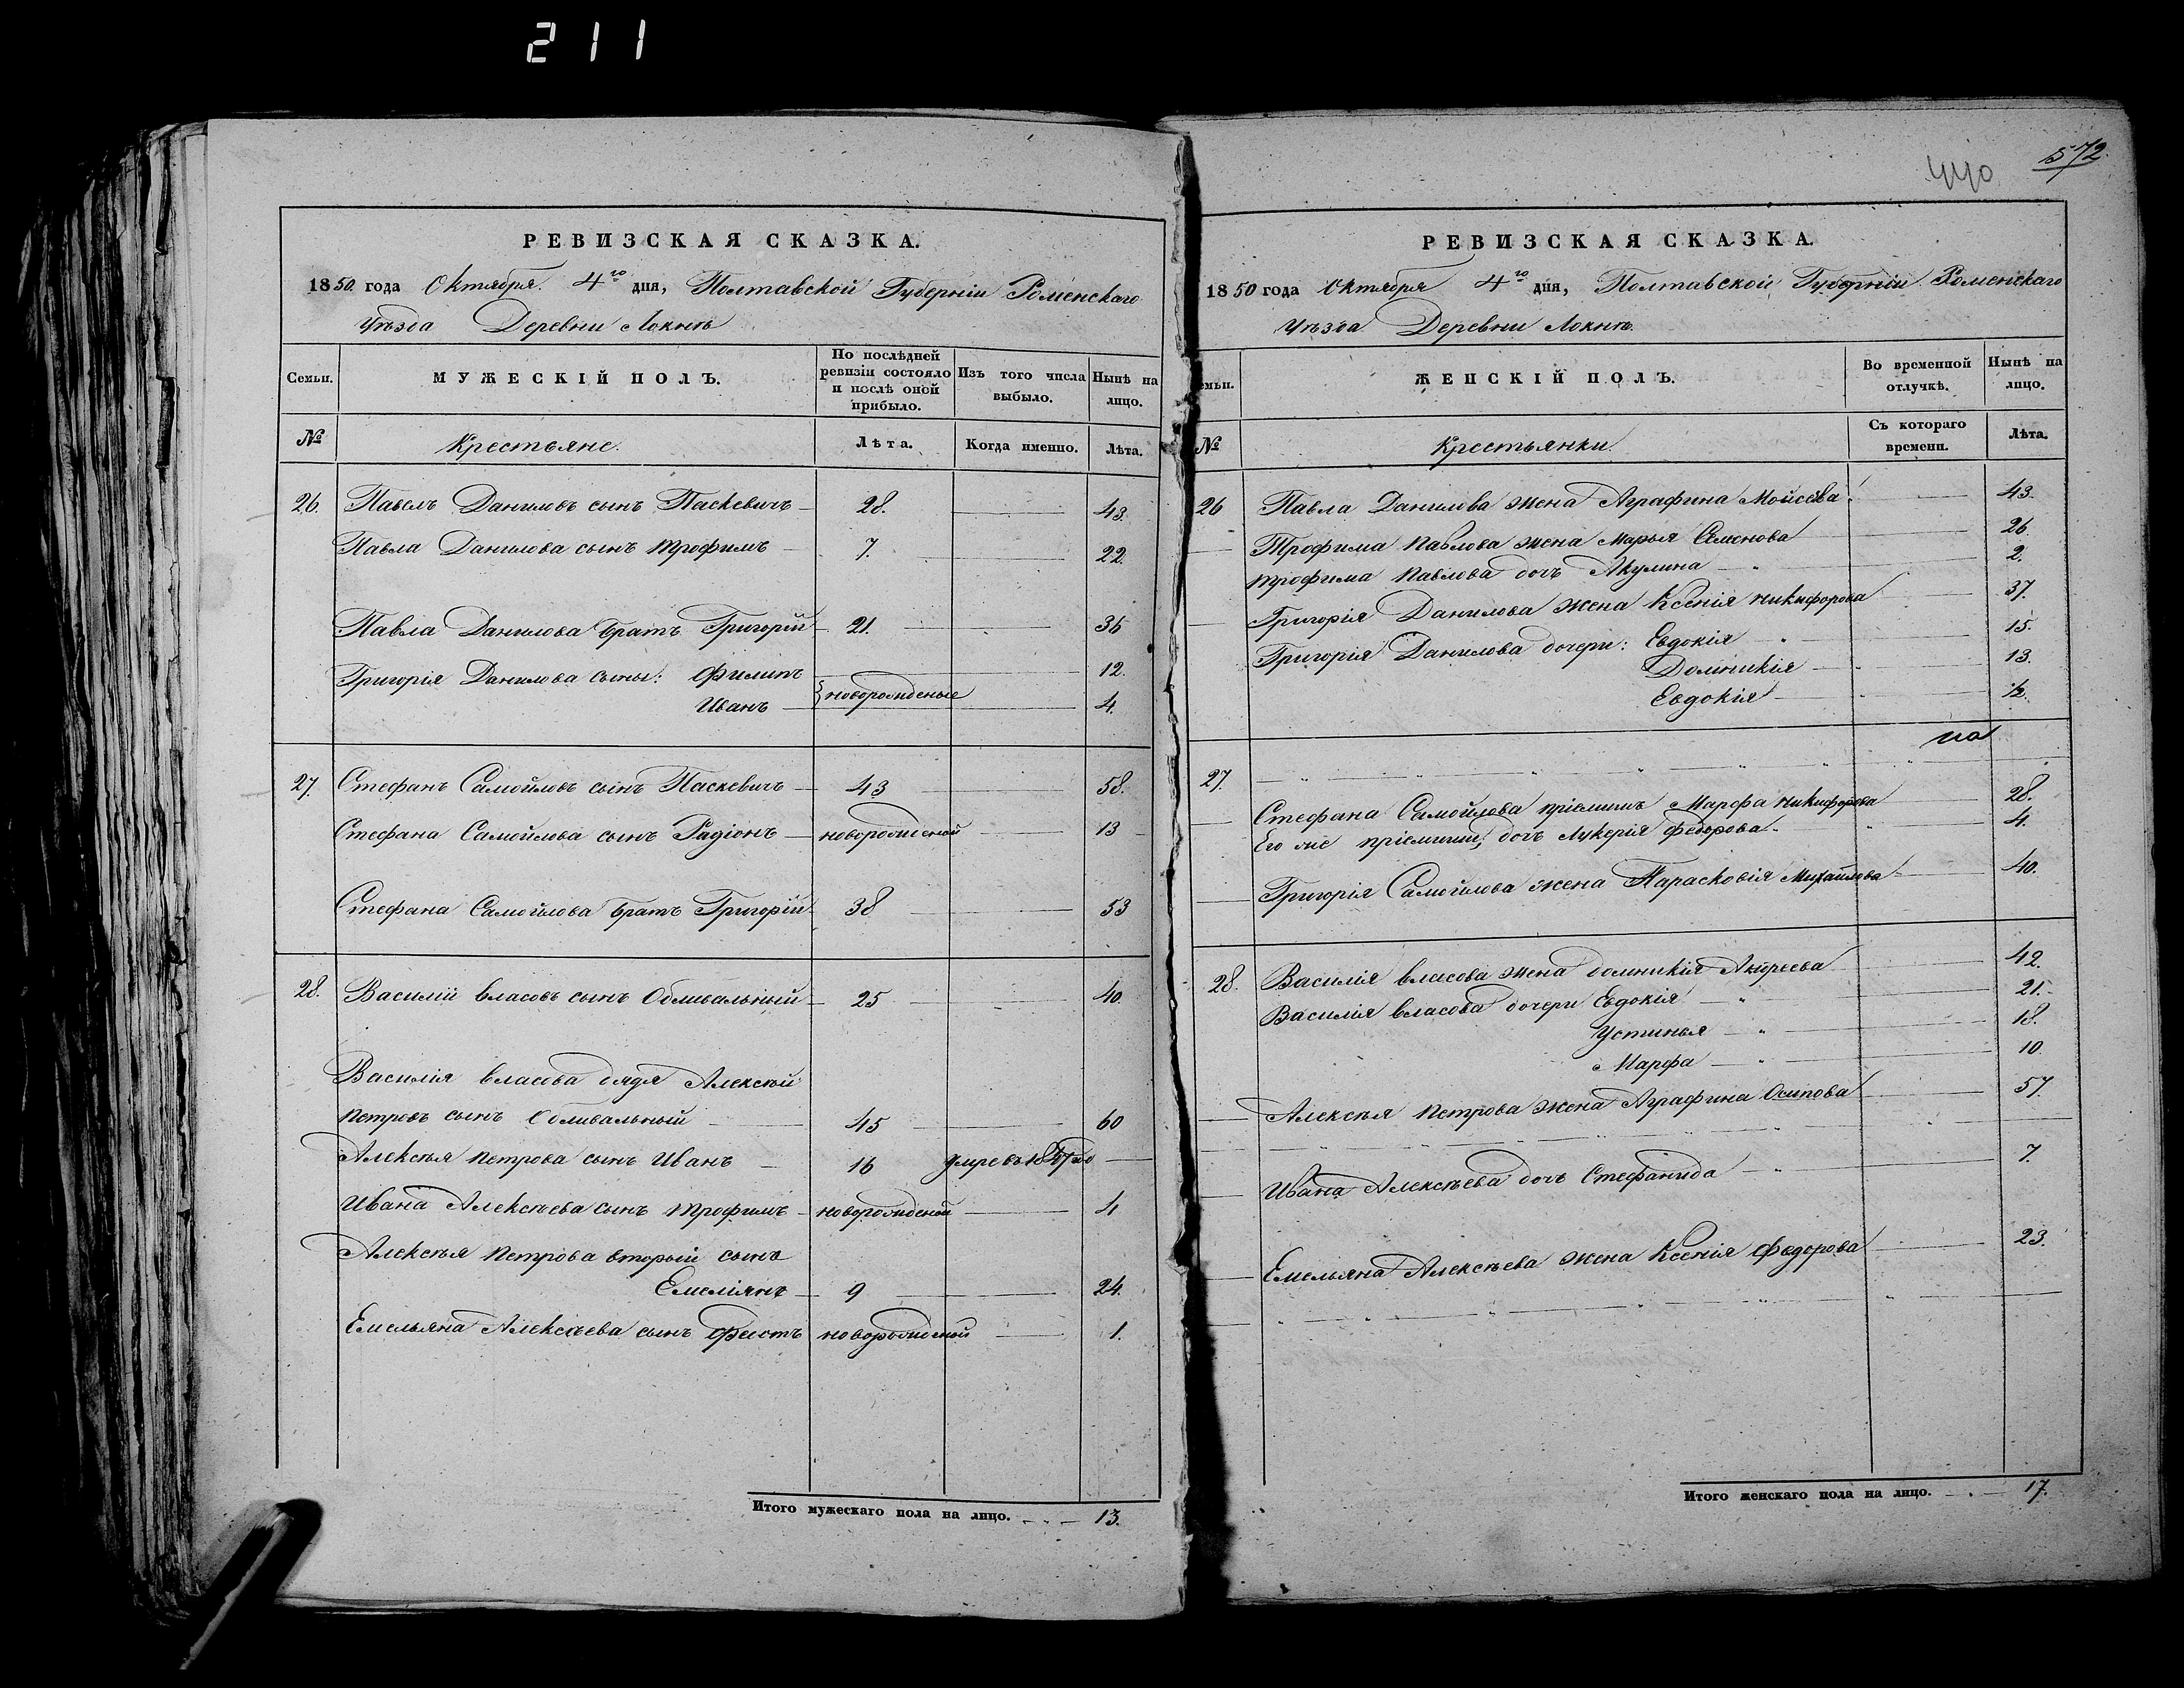 211
РЕВИЗСКАЯ СКАЗКА.
1850. года Октября. 4го дня, Полтавской Губерніи Роменскаго
Уѣзда Деревни Локнѣ
Семьи. МУЖЕСКІЙ ПОЛЪ. По послѣдней ревизіи состояло и послѣ оной прибыло. Изъ того числа выбыло. Нынѣ на лицо.
№ Крестьяне. Лѣта. Когда именно. Лѣта.
26. Павелъ Даниловъ сынъ Паскевичъ 28. 43.
Павла Данилова сынъ Трофимъ 7. 22.
Павла Данилова братъ Григорій 21. 36
Григорія Данилова сыны: Филипъ 12.
новорожденые
Иванъ 4.
27. Стефанъ Самойловъ сынъ Паскевичъ 43 58.
Стефана Самойлова сынъ Радіонъ новорожденой 13
Стефана Самойлова братъ Григорій 38 53
28. Василій Власовъ сынъ Обливальный 25 40
Василія Власова дядя Алексѣй
Петровъ сынъ Обливальный 45 60
Алексѣя Петрова сынъ Иванъ 16 умре въ
Ивана Алексѣева сынъ Трофимъ новорожденой 4
Алексѣя Петрова вторый сынъ
Емеліянъ 9 24.
Емельяна Алексѣева сынъ новорожденой 1.
Итого мужескаго пола на лицо. 13.
440
572.
РЕВИЗСКАЯ СКАЗКА.
1850 года Октября 4го дня, Полтавской Губерніи Роменскаго
Уѣзда Деревни Локнѣ.
Семьи. ЖЕНСКІЙ ПОЛЪ. Во временной отлучкѣ. Нынѣ на лицо.
№ Крестьянки. Съ котораго времени. Лѣта.
26 Павла Данилова жена Аграфина Мойсева. 43.
Трофима Павлова жена Марья Семенова 26
Трофима Павлова дочь Акулина 2.
Григорія Данилова жена Ксенія Никифорова 37.
Григорія Данилова дочери: Евдокія 15.
Домникія 13.
Евдокія ½.
27.
Стефана Самойлова пріемишъ Марфа Никифорова 28.
Его же пріемиши, дочь Лукерія Федорова 4.
Григорія Самойлова жена Парасковія Михайлова 40.
28. Василія Власова жена Домникія Андреева 42.
Василія Власова дочери Евдокія 21.
Устинья 18.
Марфа 10
Алексѣя Петрова жена Аграфина Осипова 57
Ивана Алексѣева дочь Стефанида 7.
Емельяна Алексѣева жена Ксенія Федорова 23.
Итого женскаго пола на лицо. 17.